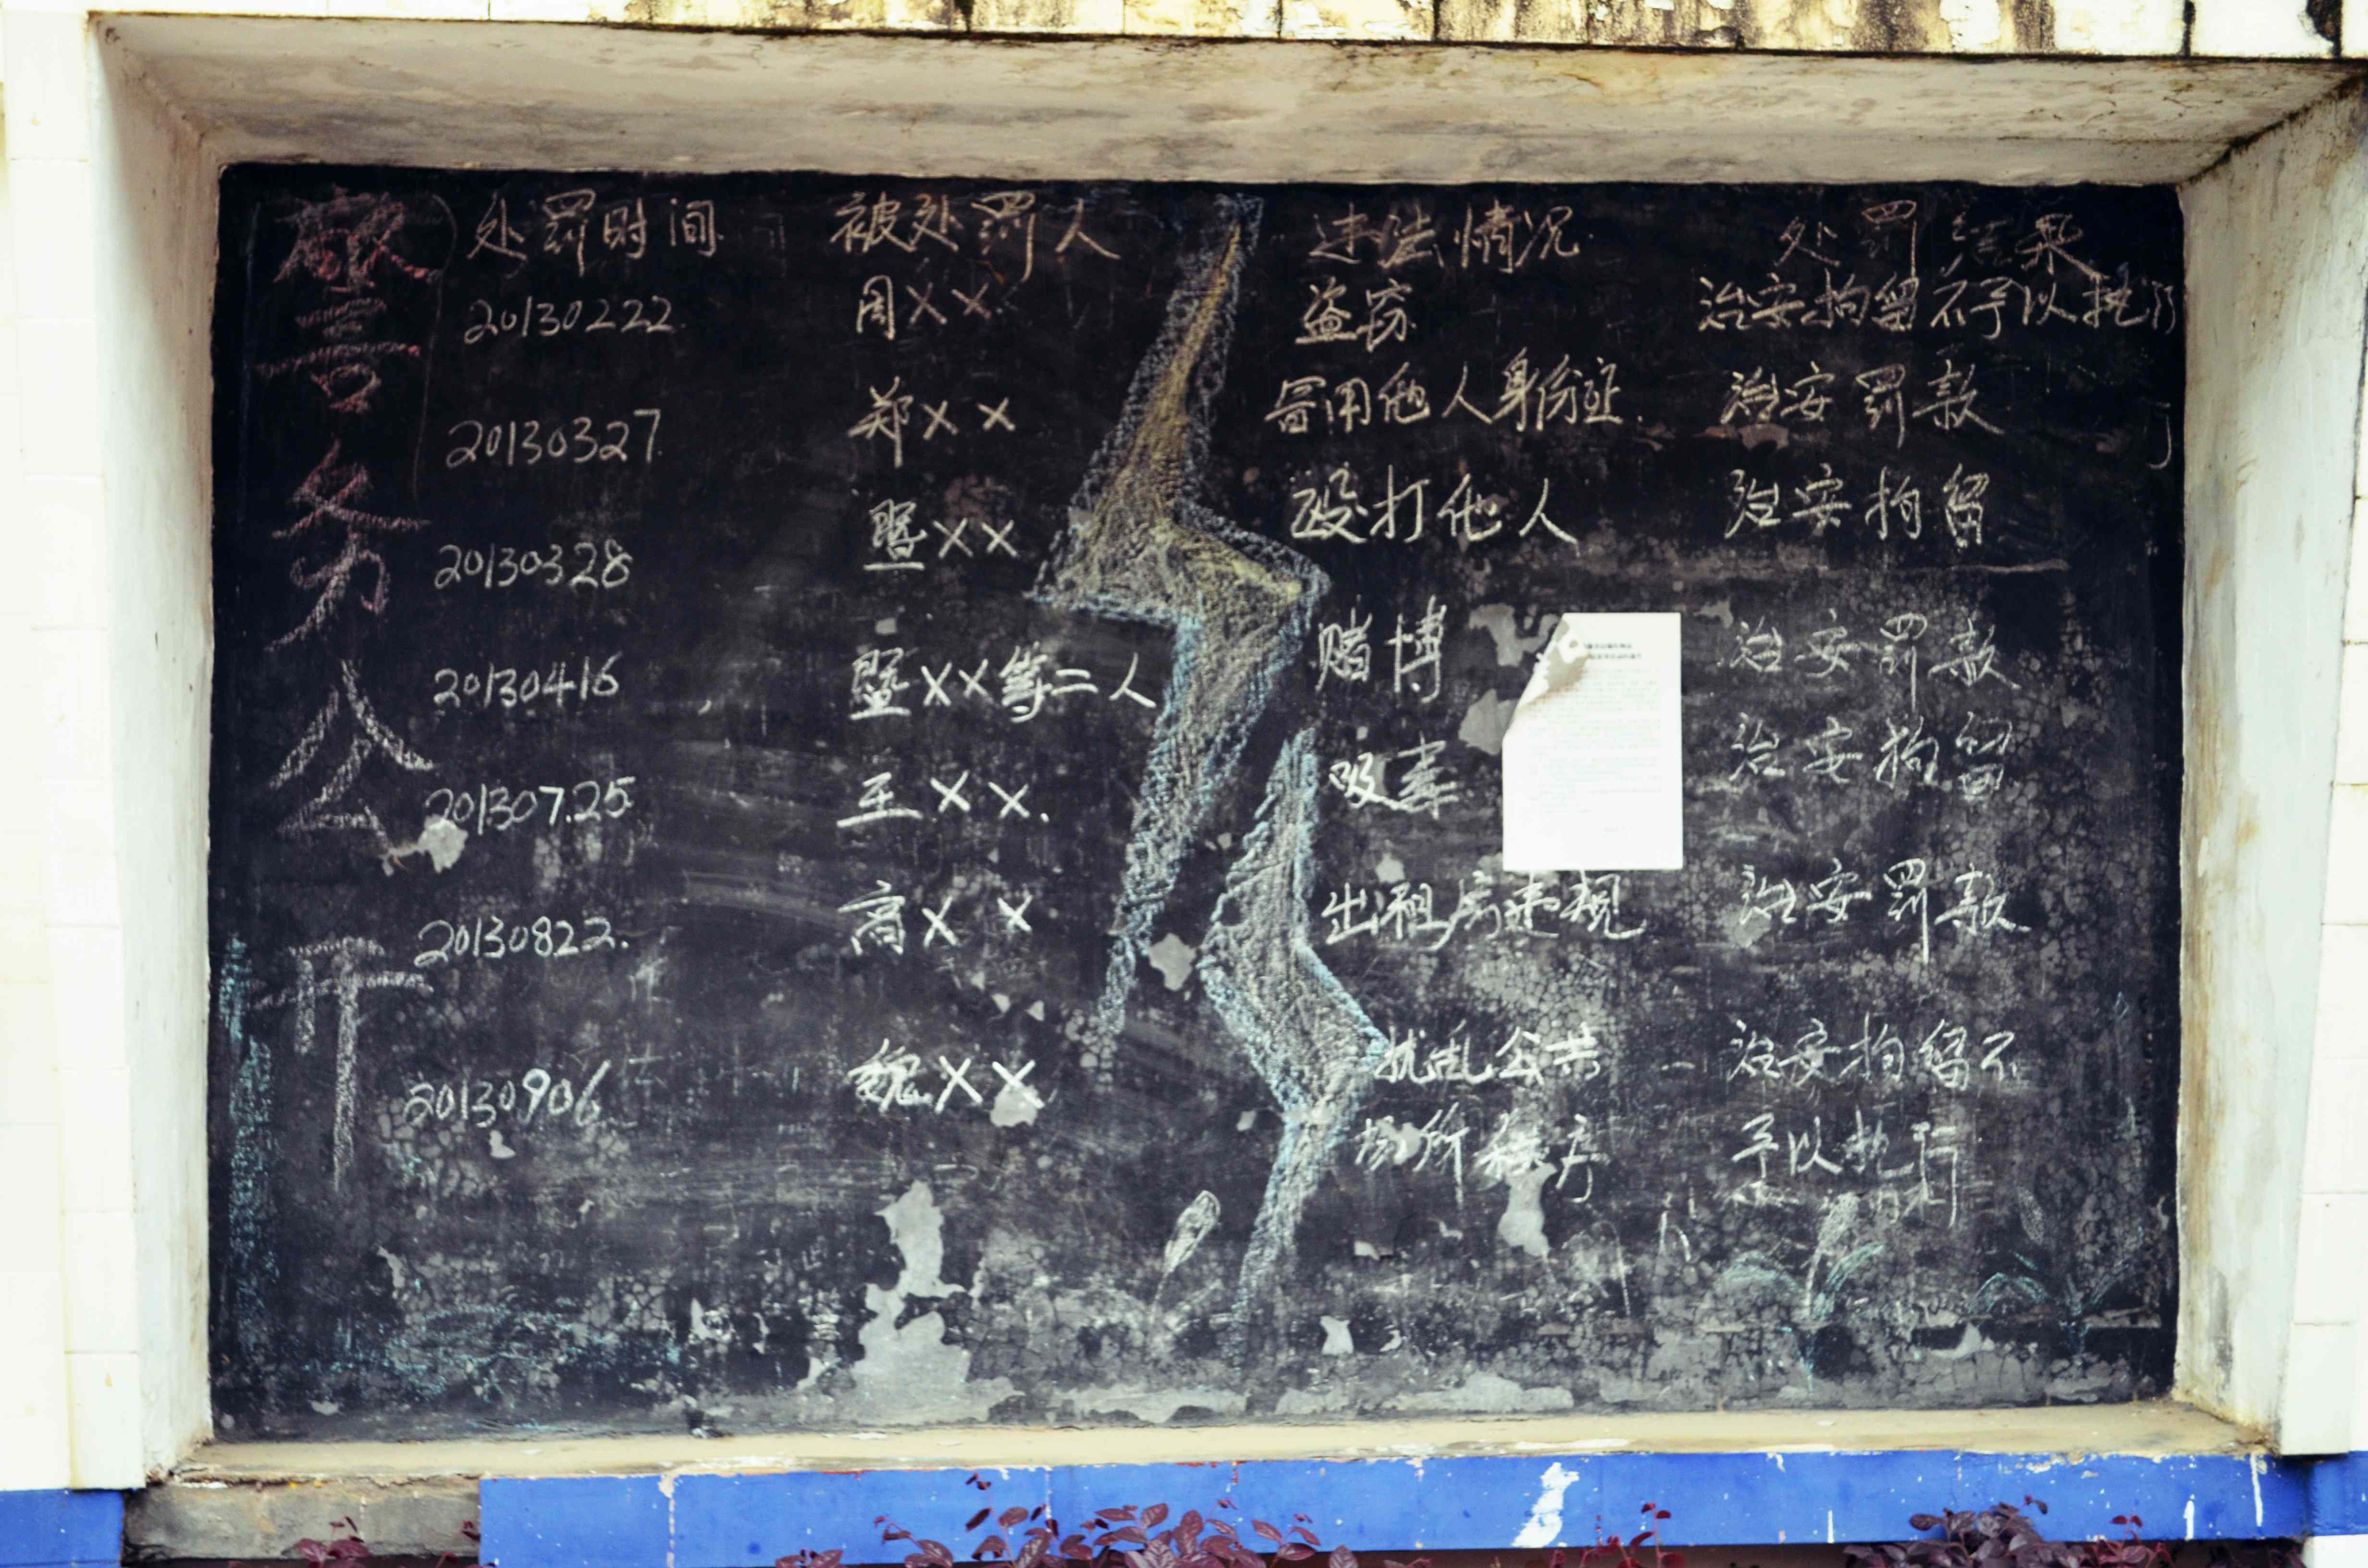 警务公开
处罚时间 被处罚人 违法情况 处罚结果
20130222 周×× 盗窃 治安拘留不予以执行
20130327 郑×× 冒用他人身份证 治安罚款
20130328 暨×× 殴打他人 治安拘留
20130416 暨××等二人 赌博 治安罚款
201307.25 王××. 吸毒 治安拘留
20130822. 高×× 出租房违规 治安罚款
20130906 魏×× 扰乱公共 治安拘留不
场所秩序 予以执行